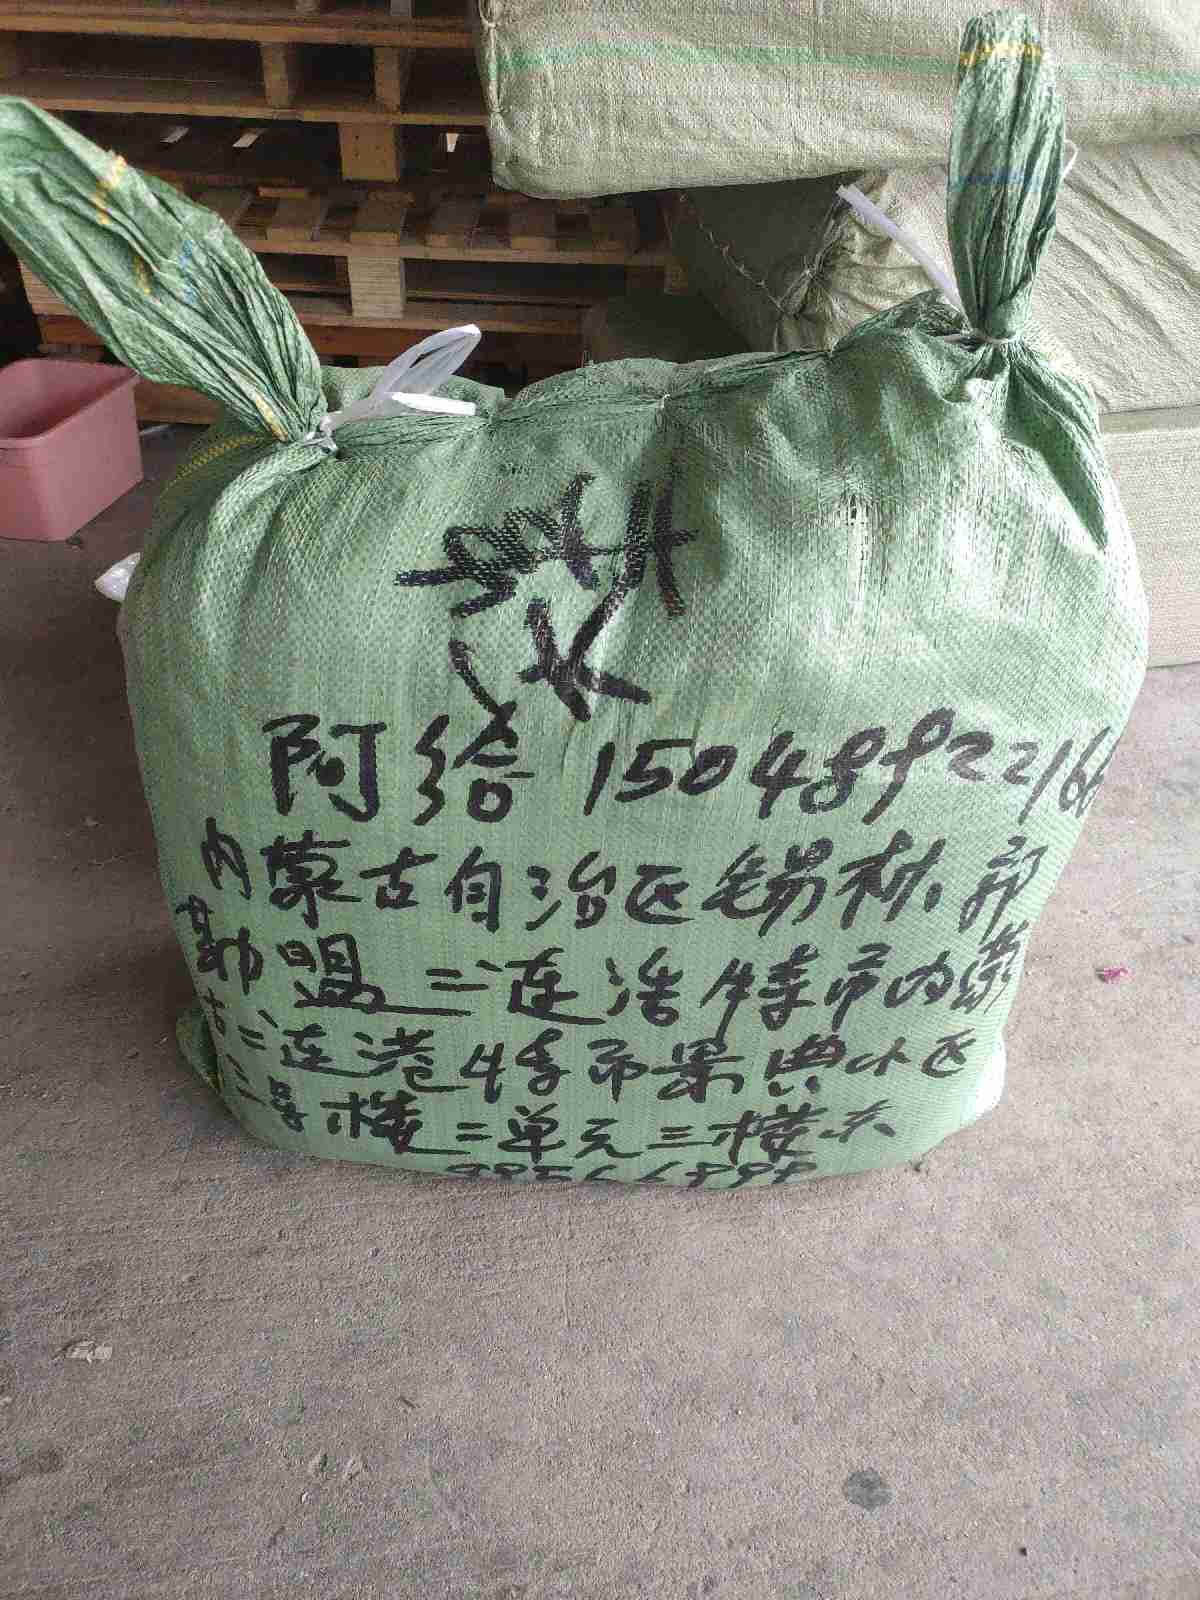 阿给 15048922166
内蒙古自治区锡林郭
勒盟二连浩特市内蒙
古二连浩特市景典小区
三号楼二单元三楼东
98566898